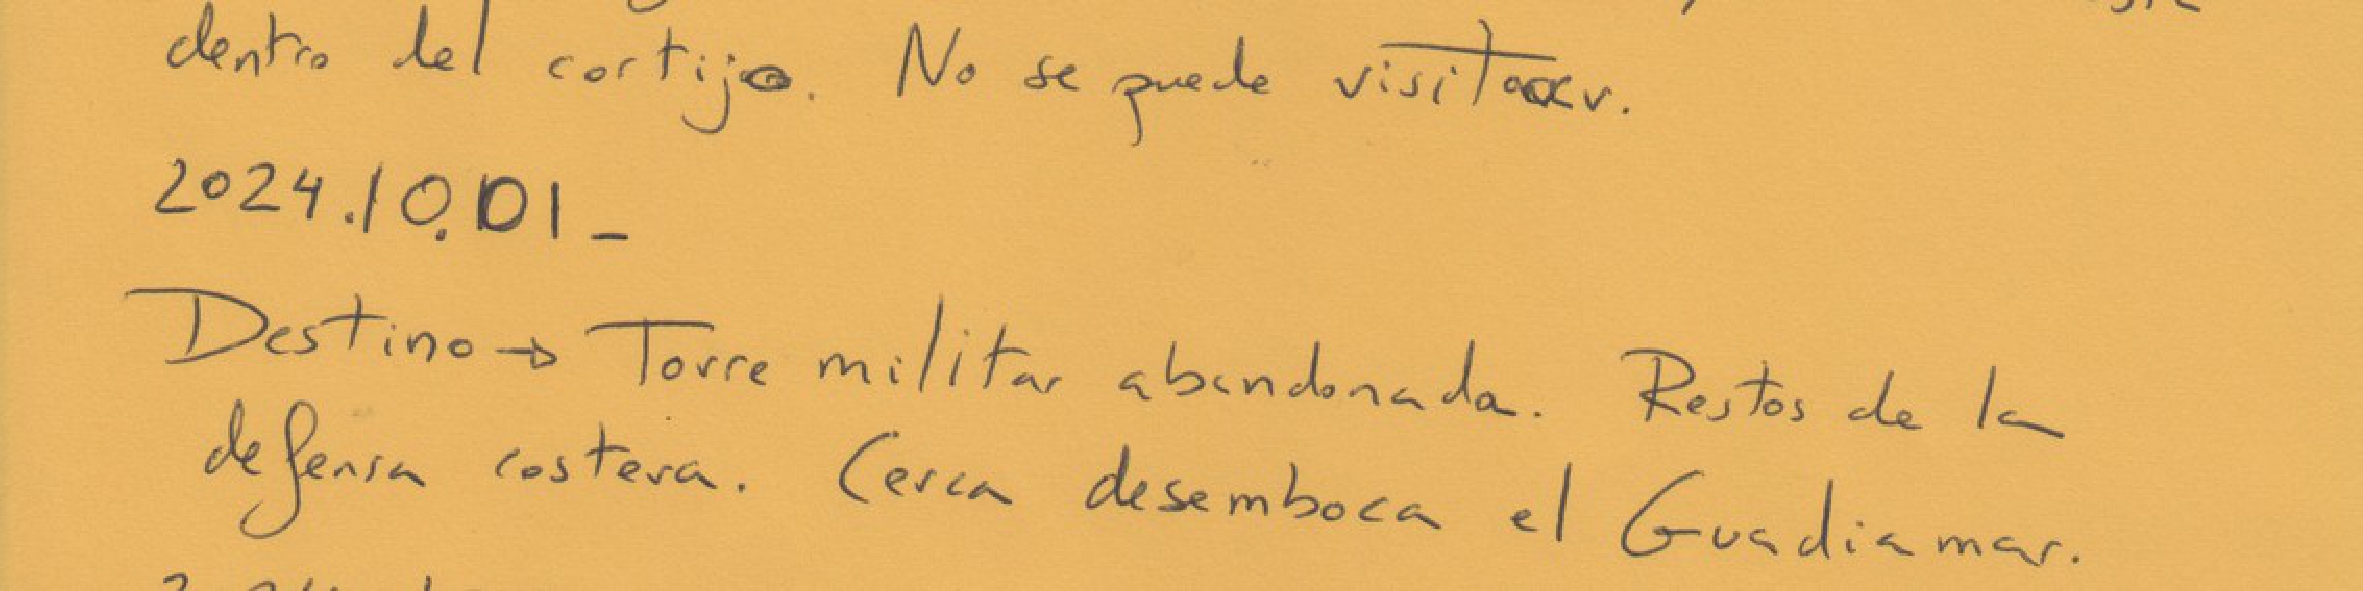 dentro del cortijo. No se puede visitar.
2024.10.01_
Destino → Torre militar abandonada. Restos de la
defensa costera. Cerca desemboca el Guadiamar.